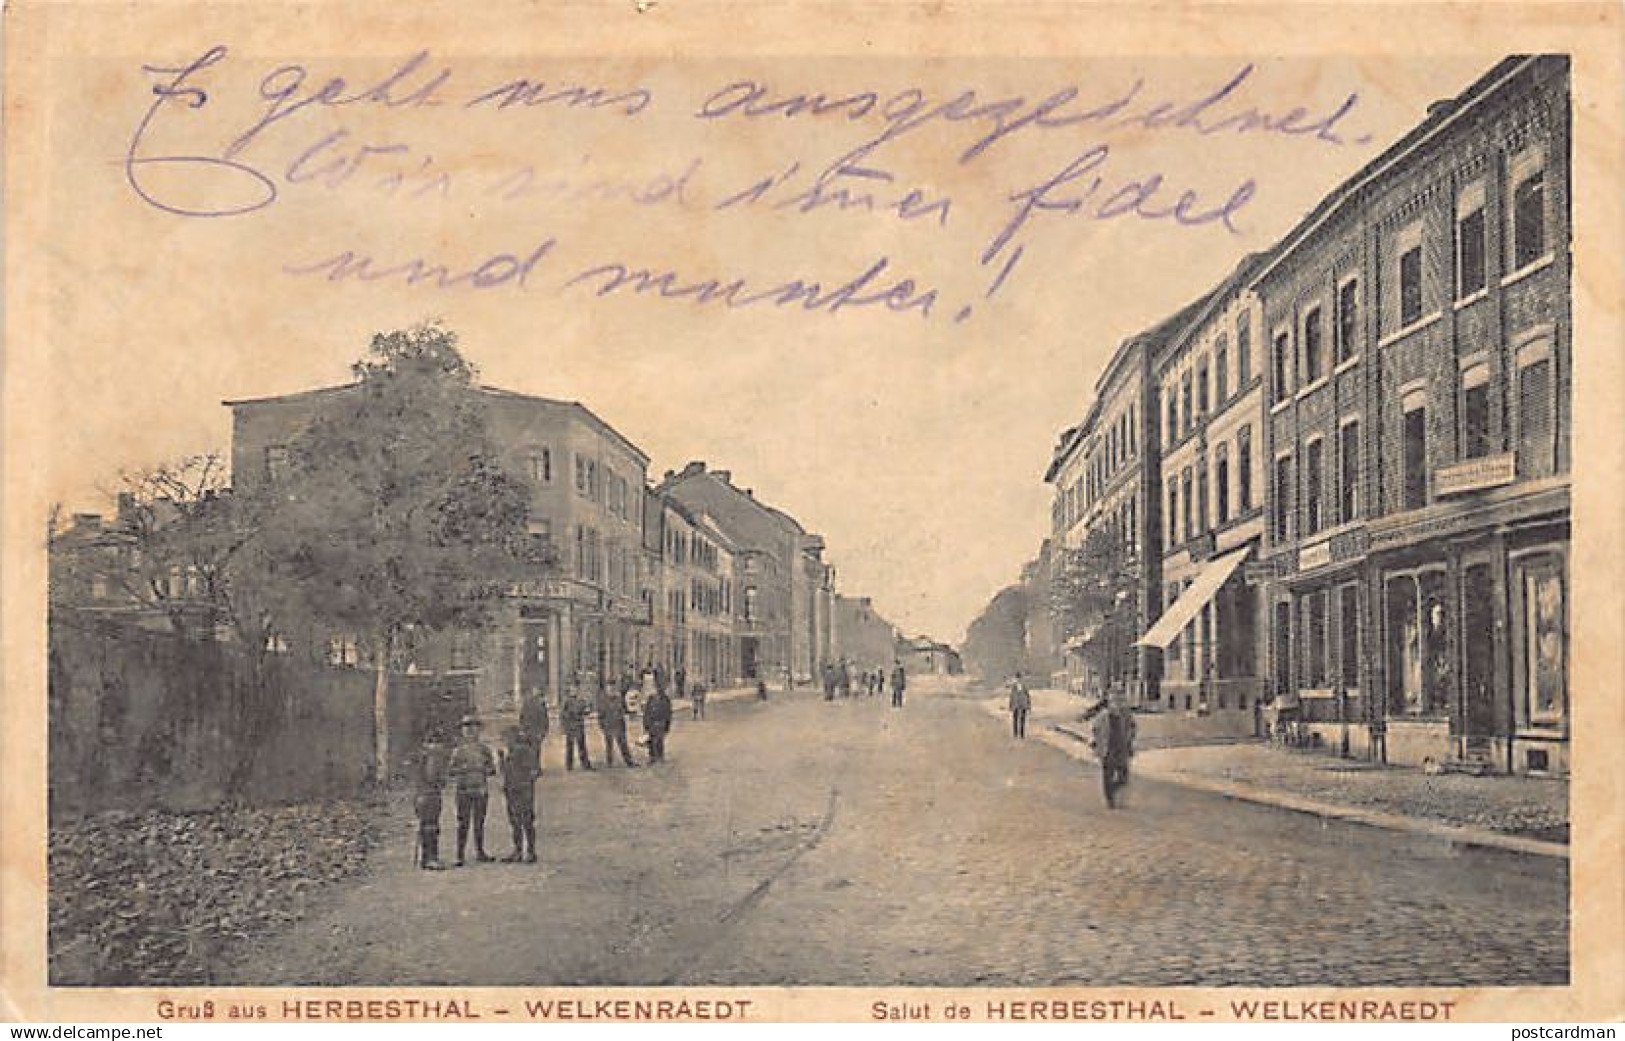 Es geht uns ausgezeichnet.
Wir sind immer fidel
und munter!
Gruß aus HERBESTHAL – WELKENRAEDT Salut de HERBESTHAL – WELKENRAEDT
www.delcampe.net postcardman